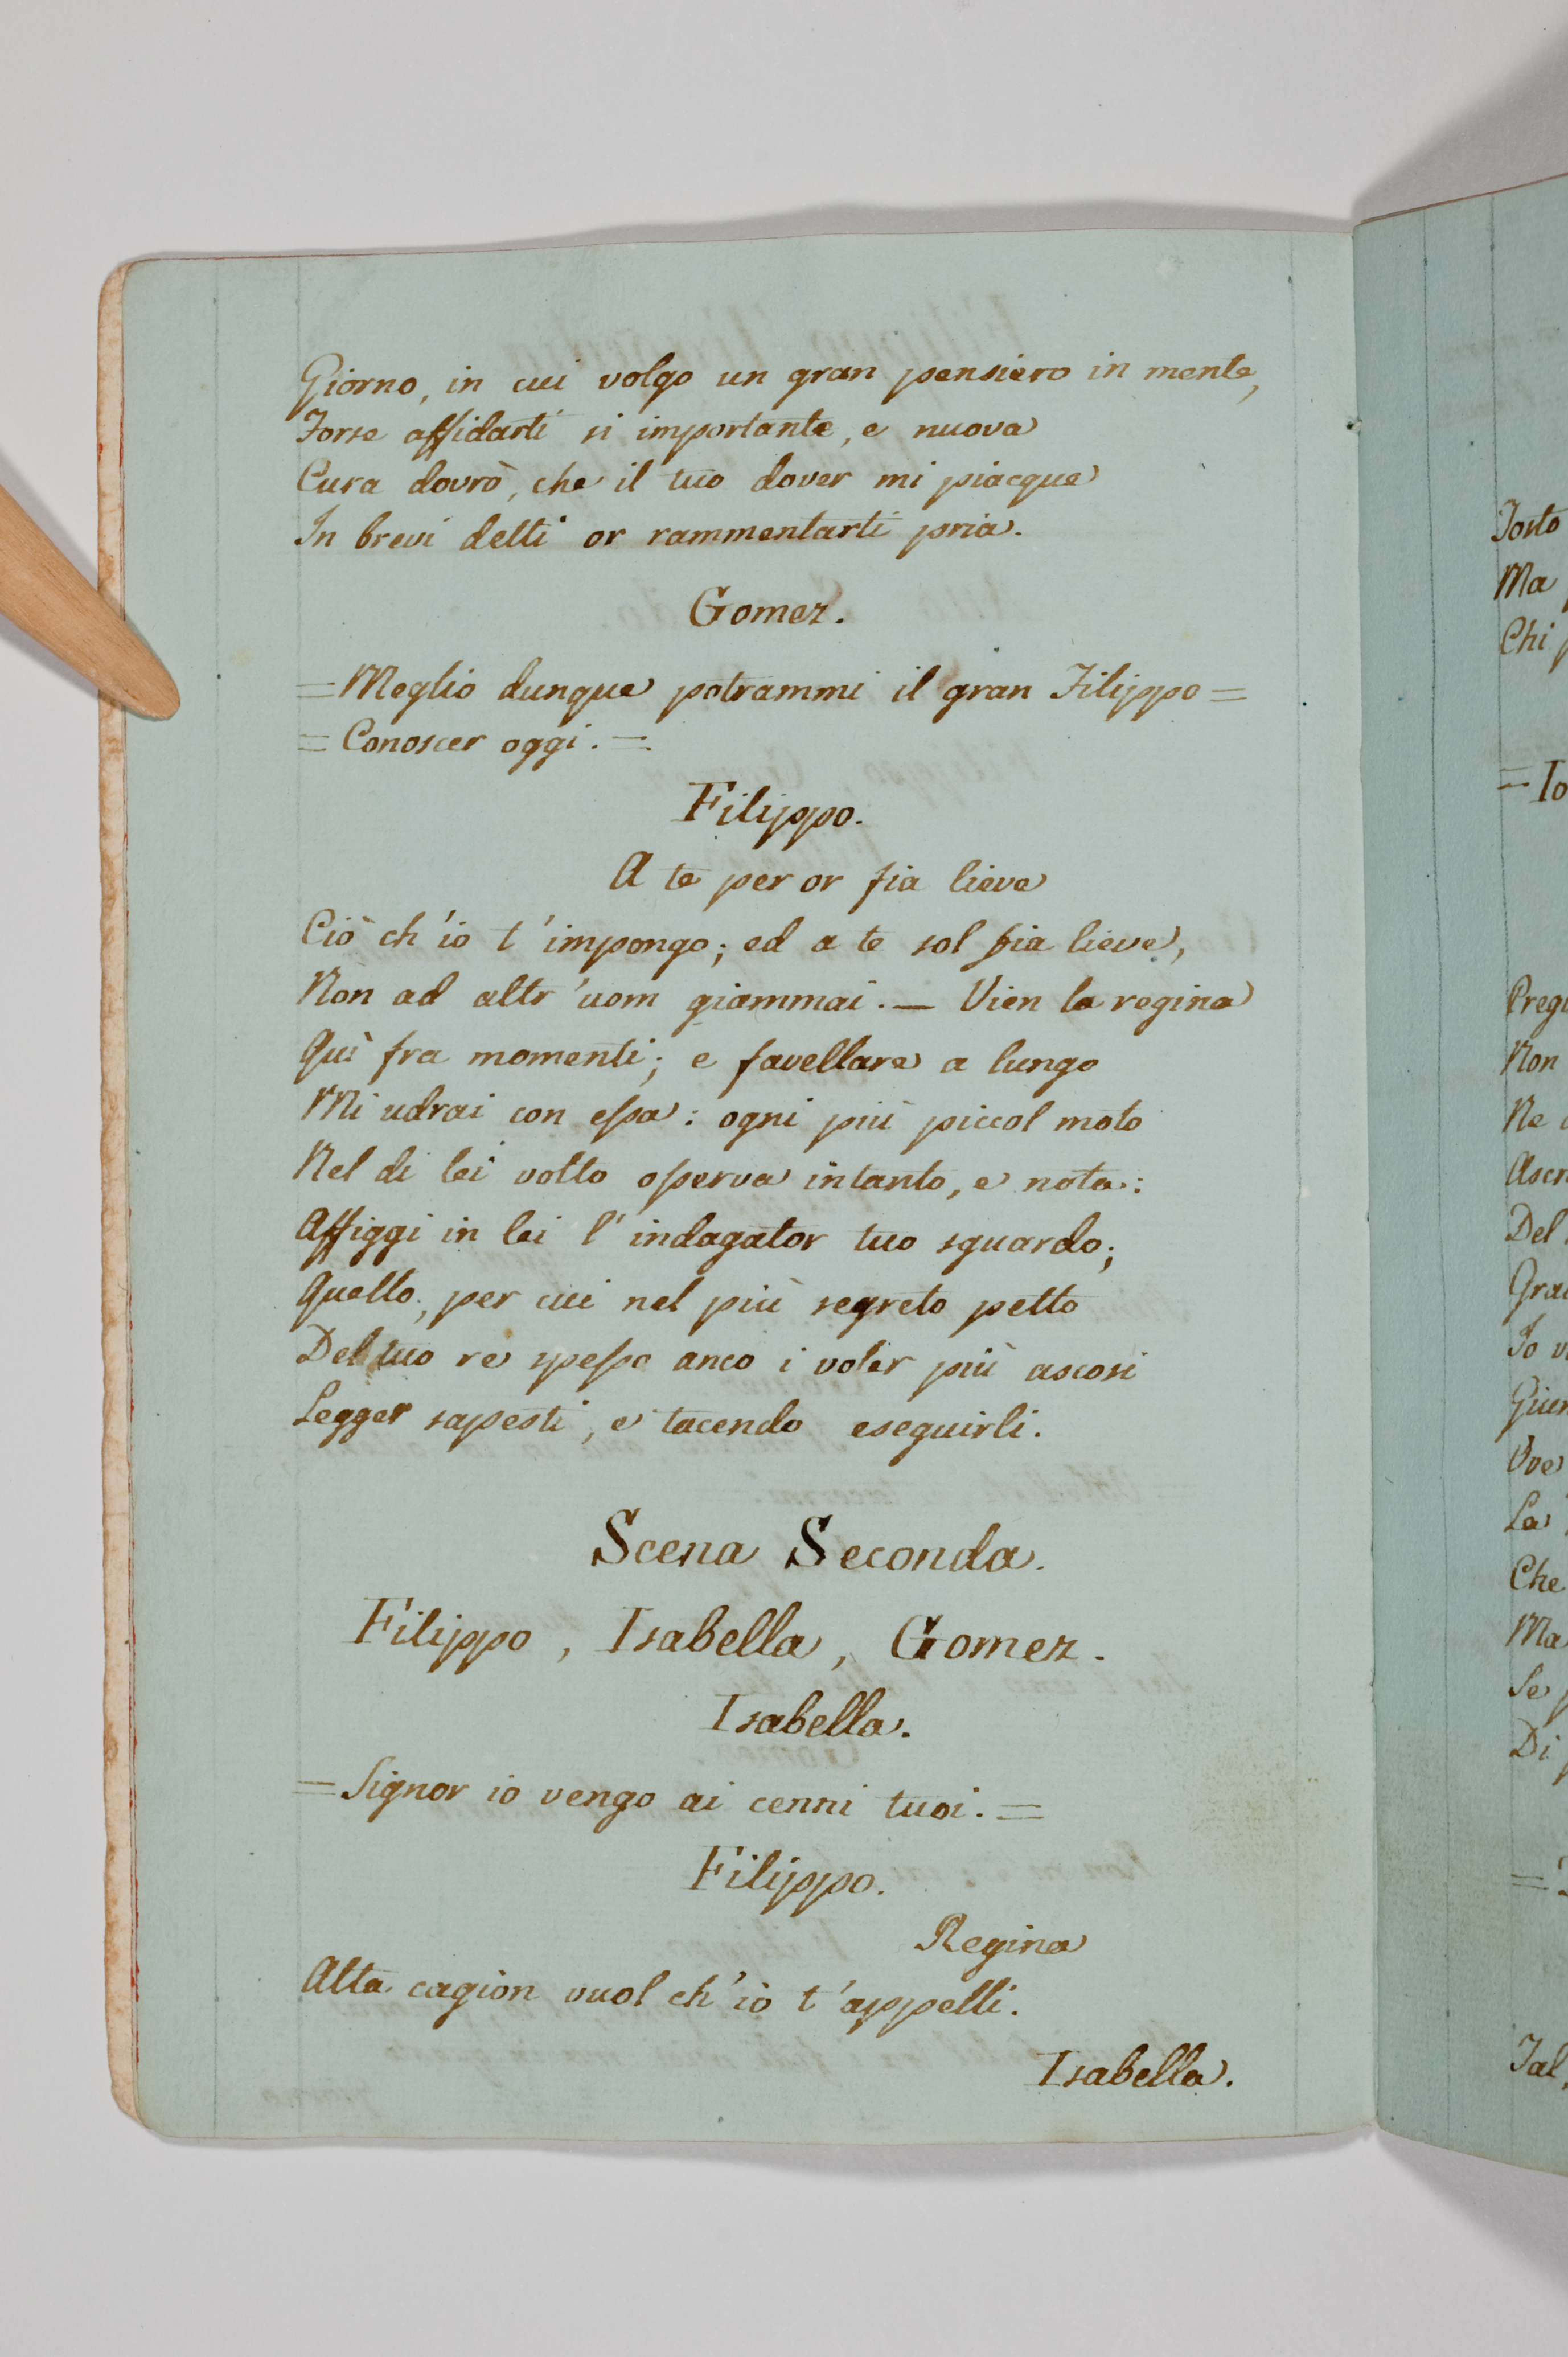 Giorno, in cui volgo un gran pensiero in mente,
Forse affidarti si importante, e nuova
Cura dovrò, che il tuo dover mi piacque
In brevi detti or rammentarti pria.
Gomez.
= Meglio dunque potrammi il gran Filippo =
= Conoscer oggi. =
Filippo.
A te per or fia lieve
Ciò ch'io t'impongo; ed a te sol fia lieve,
Non ad altr'uom giammai. — Vien la regina
Quì fra momenti; e favellare a lungo
Mi udrai con eſsa: ogni più piccol moto
Nel di lei volto oſserva intanto, e nota:
Affiggi in lei l'indagator tuo sguardo;
Quello, per cui nel più segreto petto
Del tuo re speſso anco i voler più ascosi
Legger sapesti, e tacendo eseguirli.
Scena Seconda.
Filippo, Isabella, Gomez.
Isabella.
= Signor io vengo ai cenni tuoi. =
Filippo.
Regina
Alta cagion vuol ch'io t'appelli.
Isabella.
Torto
Ma
Chi
= Io
Preg
Non
Ne
Del
Io
Ove
La
Che
Ma
Se
Di
=
Tal,